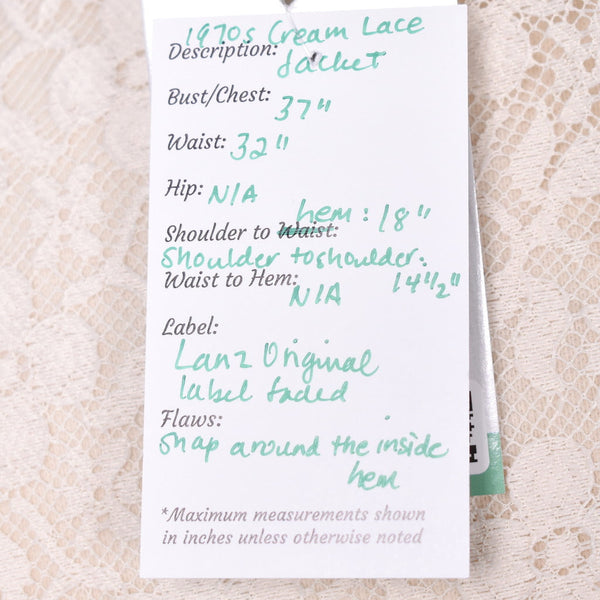 1970s Cream Lace
Description: Jacket
Bust/Chest: 37"
Waist: 32"
Hip: N/A
hem: 18"
Shoulder to Waist:
Shoulder to shoulder: 14 1/2"
Waist to Hem: N/A
Label:
Lanz Original
label faded
Flaws:
Snap around the inside
hem
*Maximum measurements shown
in inches unless otherwise noted